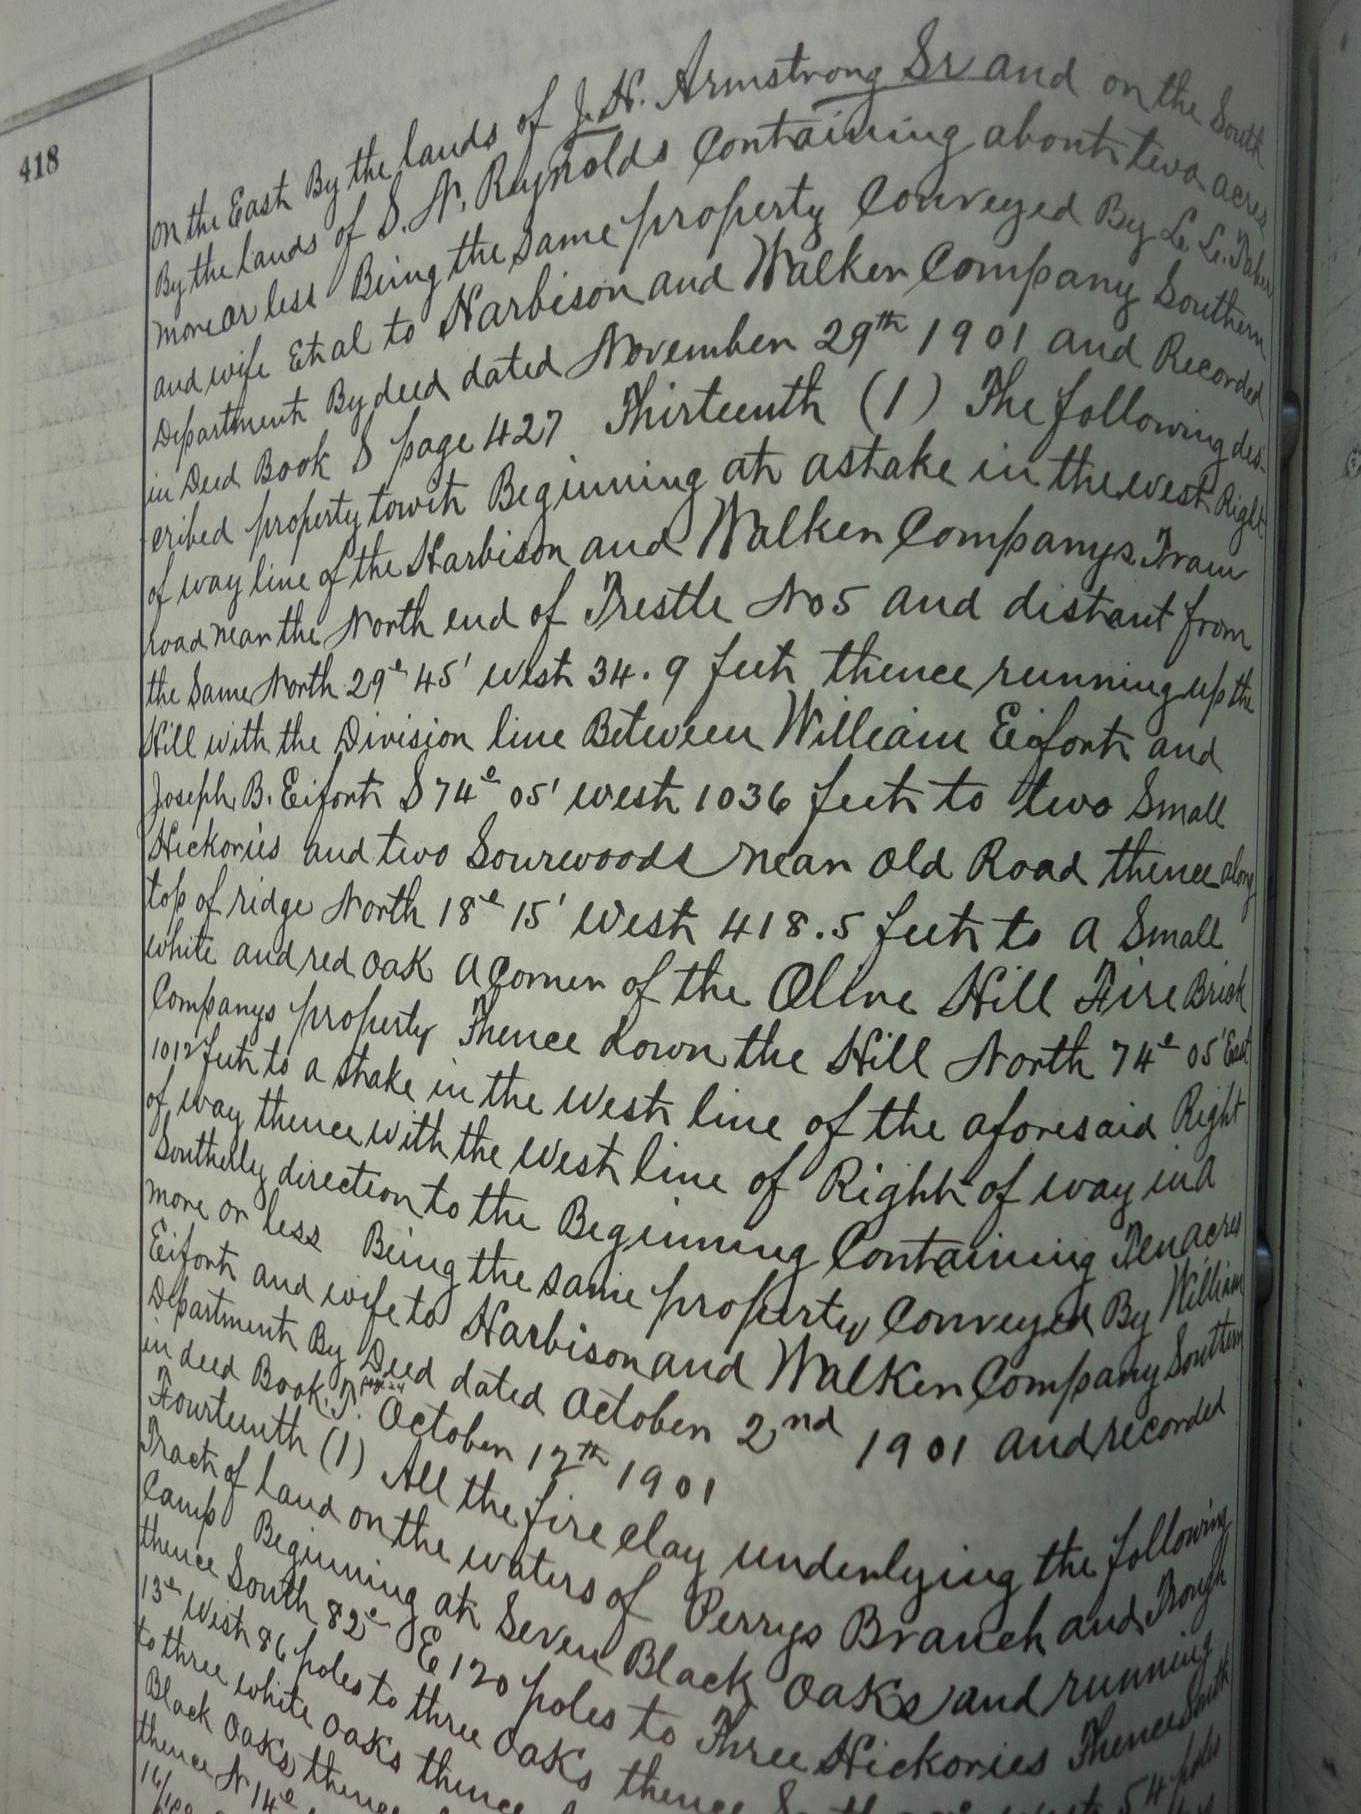 418
on the East By the lands of J. H. Armstrong Sr and on the South
By the lands of S. N. Reynolds Containing about two acres
more or less Being the same property Conveyed By L. L.
and wife Et al to Harbison and Walker Company Southern
Department By deed dated November 29th 1901 and Recorded
in Deed Book S page 427 Thirteenth (1) The following des-
cribed property towit Beginning at a stake in the west Right
of way line of the Harbison and Walker Companys Tram
road near the North end of Trestle No 5 and distant from
the Same North 29° 45' west 34.9 feet thence running up the
Hill with the Division line Between William Eifort and
Joseph B. Eifort S 74° 05' west 1036 feet to two Small
Hickories and two Sourwoods near old Road thence along
top of ridge North 18° 15' West 418.5 feet to a Small
white and red oak a Corner of the Olive Hill Fire Brick
Companys property Thence down the Hill North 74° 05' East
1012 feet to a stake in the West line of the aforesaid Right
of way thence with the west line of Right of way in a
Southerly direction to the Beginning Containing Ten acres
more or less Being the same property Conveyed By William
Eifort and wife to Harbison and Walker Company Southern
Department By Deed dated October 2nd 1901 and recorded
in deed Book T. October 12th 1901
Fourteenth (1) All the fire clay underlying the following
Tract of land on the waters of Perrys Branch and Trough
Camp Beginning at Seven Black Oaks and running
thence South 82° E 120 poles to Three Hickories Thence South
13° West 86 poles to three Oaks thence 54 poles
to three white oaks thence
Black Oaks thence
thence N 14°